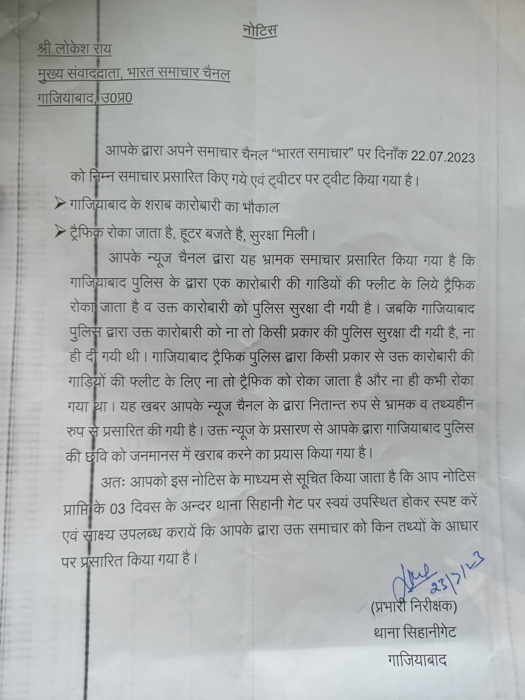 नोटिस
श्री लोकेश राय
मुख्य संवाददाता, भारत समाचार चैनल
गाजियाबाद, उ0प्र0
आपके द्वारा अपने समाचार चैनल "भारत समाचार" पर दिनाँक 22.07.2023
को निम्न समाचार प्रसारित किए गये एवं ट्वीटर पर ट्वीट किया गया है।
➤ गाजियाबाद के शराब कारोबारी का भौकाल
➤ ट्रैफिक रोका जाता है, हूटर बजते है, सुरक्षा मिली।
आपके न्यूज चैनल द्वारा यह भ्रामक समाचार प्रसारित किया गया है कि
गाजियाबाद पुलिस के द्वारा एक कारोबारी की गाडियों की फ्लीट के लिये ट्रैफिक
रोका जाता है व उक्त कारोबारी को पुलिस सुरक्षा दी गयी है। जबकि गाजियाबाद
पुलिस द्वारा उक्त कारोबारी को ना तो किसी प्रकार की पुलिस सुरक्षा दी गयी है, ना
ही दी गयी थी। गाजियाबाद ट्रैफिक पुलिस द्वारा किसी प्रकार से उक्त कारोबारी की
गाड़ियों की फ्लीट के लिए ना तो ट्रैफिक को रोका जाता है और ना ही कभी रोका
गया था। यह खबर आपके न्यूज चैनल के द्वारा नितान्त रुप से भ्रामक व तथ्यहीन
रुप से प्रसारित की गयी है। उक्त न्यूज के प्रसारण से आपके द्वारा गाजियाबाद पुलिस
की छवि को जनमानस में खराब करने का प्रयास किया गया है।
अतः आपको इस नोटिस के माध्यम से सूचित किया जाता है कि आप नोटिस
प्राप्ति के 03 दिवस के अन्दर थाना सिहानी गेट पर स्वयं उपस्थित होकर स्पष्ट करें
एवं साक्ष्य उपलब्ध करायें कि आपके द्वारा उक्त समाचार को किन तथ्यों के आधार
पर प्रसारित किया गया है।
23/7/23
(प्रभारी निरीक्षक)
थाना सिहानीगेट
गाजियाबाद